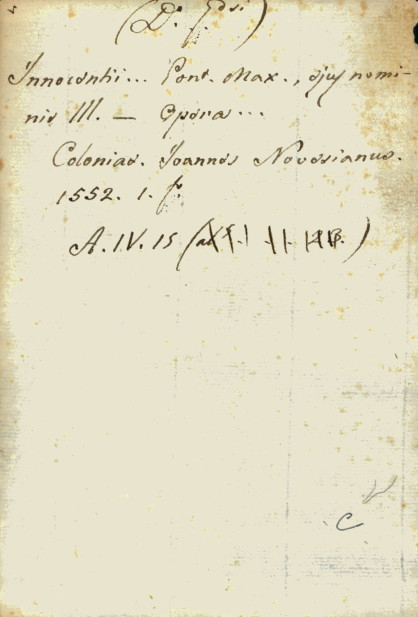 (D. f.
Innocentii... Pont. Max., ejus nomi-
nis III. — Opera...
Coloniae. Joannes Novesianus.
1552. 1. f.
A. IV. 15 (
C